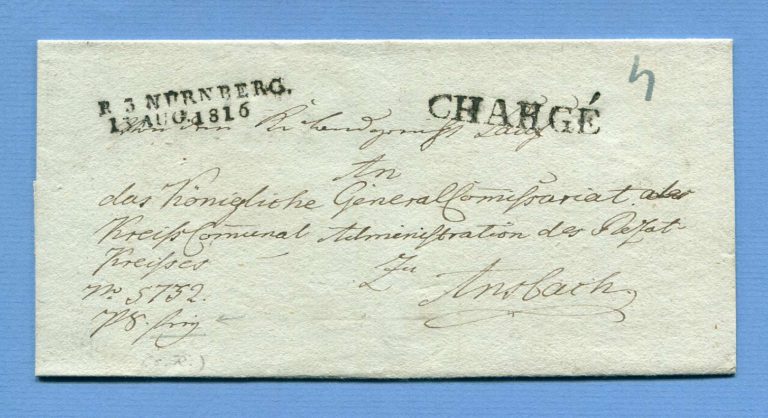 R. 3 NÜRNBERG.
13 AUG. 1816
CHARGÉ
4
An
das Königliche GeneralComißariat als
KreißComunal Administration des Rezat
Kreißes
Zu
Ansbach
No 5732.